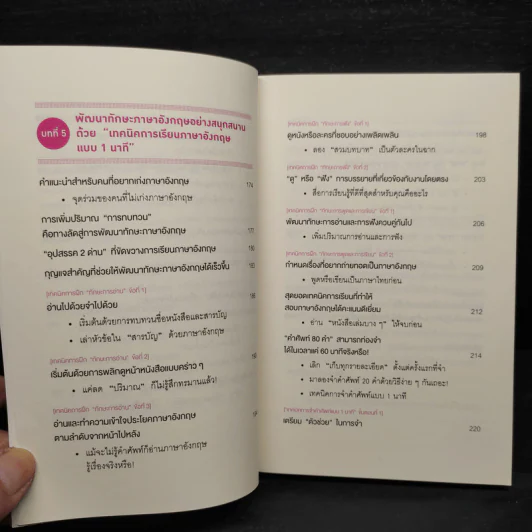 บทที่ 5
พัฒนาทักษะภาษาอังกฤษอย่างสนุกสนาน
ด้วย "เทคนิคการเรียนภาษาอังกฤษ
แบบ 1 นาที"
คำแนะนำสำหรับคนที่อยากเก่งภาษาอังกฤษ 174
• จุดร่วมของคนที่ไม่เก่งภาษาอังกฤษ
การเพิ่มปริมาณ "การทบทวน"
คือทางลัดสู่การพัฒนาทักษะภาษาอังกฤษ
"อุปสรรค 2 ด่าน" ที่ขัดขวางการเรียนภาษาอังกฤษ
กุญแจสำคัญที่ช่วยให้พัฒนาทักษะภาษาอังกฤษได้เร็วขึ้น
[เทคนิคการฝึก "ทักษะการอ่าน" ข้อที่ 1]
อ่านไปด้วยจำไปด้วย
• เริ่มต้นด้วยการทบทวนชื่อหนังสือและสารบัญ
• เล่าหัวข้อใน "สารบัญ" ด้วยภาษาอังกฤษ
[เทคนิคการฝึก "ทักษะการอ่าน" ข้อที่ 2]
เริ่มต้นด้วยการพลิกดูหน้าหนังสือแบบคร่าว ๆ
• แค่ลด "ปริมาณ" ก็ไม่รู้สึกทรมานแล้ว!
[เทคนิคการฝึก "ทักษะการอ่าน" ข้อที่ 3]
อ่านและทำความเข้าใจประโยคภาษาอังกฤษ
ตามลำดับจากหน้าไปหลัง
• แม้จะไม่รู้คำศัพท์ก็อ่านภาษาอังกฤษ
รู้เรื่องจริงหรือ!
[เทคนิคการฝึก "ทักษะการฟัง" ข้อที่ 1]
ดูหนังหรือละครที่ชอบอย่างเพลิดเพลิน 198
• ลอง "สวมบทบาท" เป็นตัวละครในฉาก
[เทคนิคการฝึก "ทักษะการฟัง" ข้อที่ 2]
"ดู" หรือ "ฟัง" การบรรยายที่เกี่ยวข้องกับงานโดยตรง 203
• สื่อการเรียนรู้ที่ดีที่สุดสำหรับคุณคืออะไร
พัฒนาทักษะการอ่านและการฟังควบคู่กันไป 206
• เพิ่มปริมาณการอ่านและการฟัง
กำหนดเรื่องที่อยากถ่ายทอดเป็นภาษาอังกฤษ 209
• พูดหรือเขียนเป็นภาษาไทยก่อน
สุดยอดเทคนิคการเรียนที่ทำให้
สอบภาษาอังกฤษได้คะแนนดีเยี่ยม 212
• อ่าน "หนังสือเล่มบาง ๆ" ให้จบก่อน
"คำศัพท์ 80 คำ" สามารถท่องจำ
ได้ในเวลาแค่ 60 นาทีจริงหรือ! 214
• เลิก "เก็บทุกรายละเอียด" ตั้งแต่ครั้งแรกที่จำ
• มาลองจำคำศัพท์ 20 คำด้วยวิธีง่าย ๆ กันเถอะ!
• เทคนิคการจำคำศัพท์แบบ 1 นาที
เตรียม "ตัวช่วย" ในการจำ 220